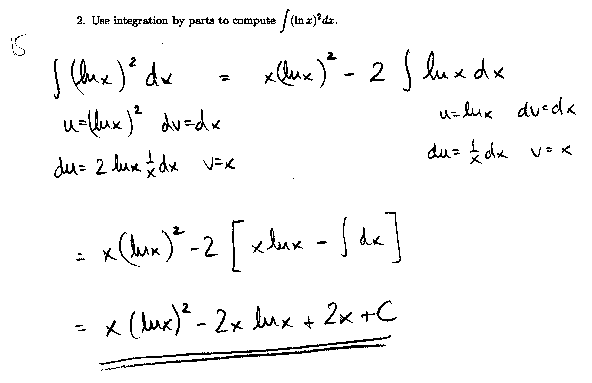 2. Use integration by parts to compute ∫(ln x)²dx.
15
∫(lnx)² dx = x(lnx)² - 2 ∫ lnx dx
u=(lnx)² dv=dx u=lnx dv=dx
du= 2 lnx 1/x dx v=x du= 1/x dx v=x
= x(lnx)² - 2 [xlnx - ∫dx]
= x(lnx)² - 2x lnx + 2x + C